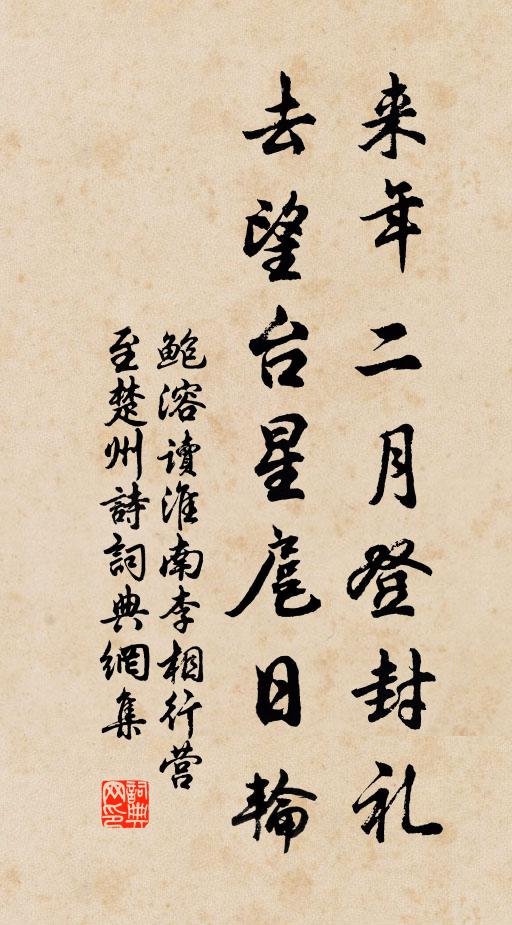 来年二月登封礼
去望台星扈日輪
鲍溶读淮南李相行营
至楚州詩詞典網集
詞典网印